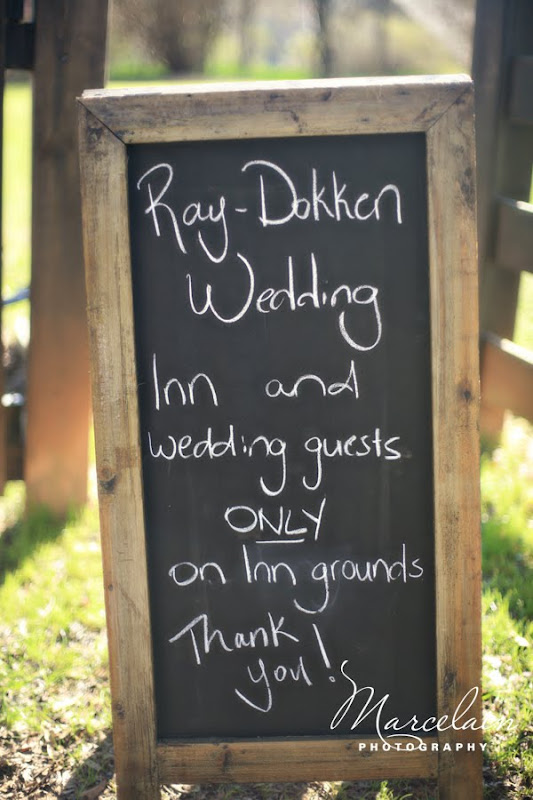 Ray-Dokken
Wedding
Inn and
wedding guests
ONLY
on Inn grounds
Thank
you!
Marcelain
PHOTOGRAPHY